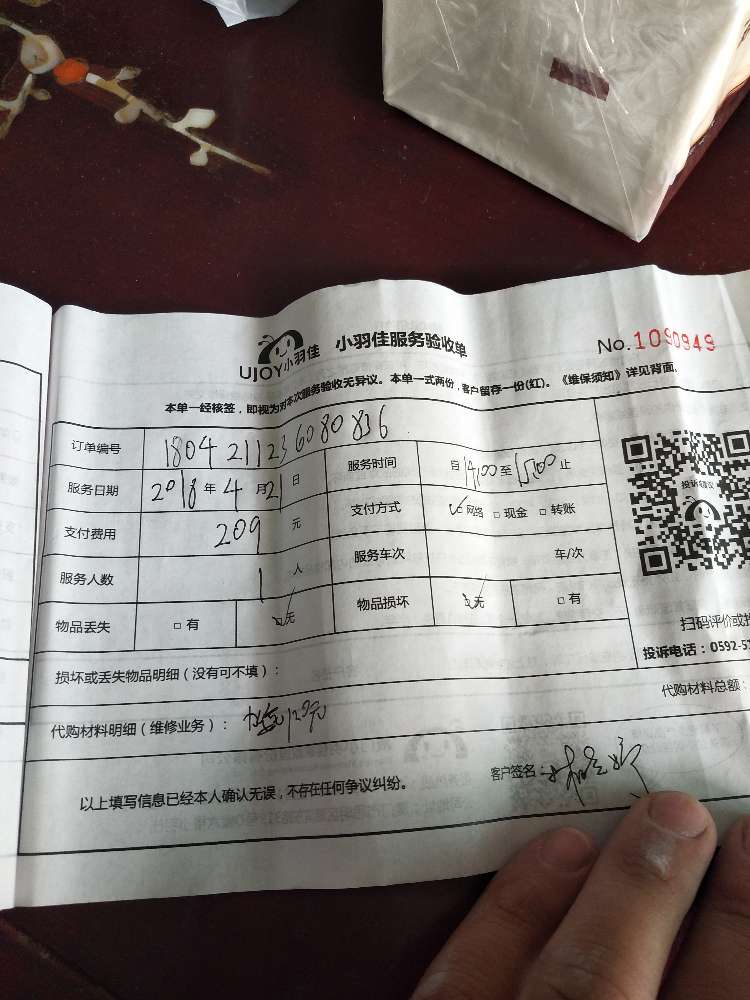 UJOY小羽佳 小羽佳服务验收单 No.1090949
本单一经核签，即视为对本次服务验收无异议。本单一式两份，客户留存一份(红)。《维保须知》详见背面。
订单编号 1804211236080836 服务时间 自14:00至15:00止
服务日期 2018年4月21日 支付方式 网络 □现金 □转账
支付费用 209元 服务车次 车/次
服务人数 1人
物品丢失 □有 ☑无 物品损坏 ☑无 □有
投诉或建议
扫码评价或投
投诉电话：0592-5
损坏或丢失物品明细（没有可不填）：
代购材料明细（维修业务）： 120元 代购材料总额：
以上填写信息已经本人确认无误，不存在任何争议纠纷。 客户签名：